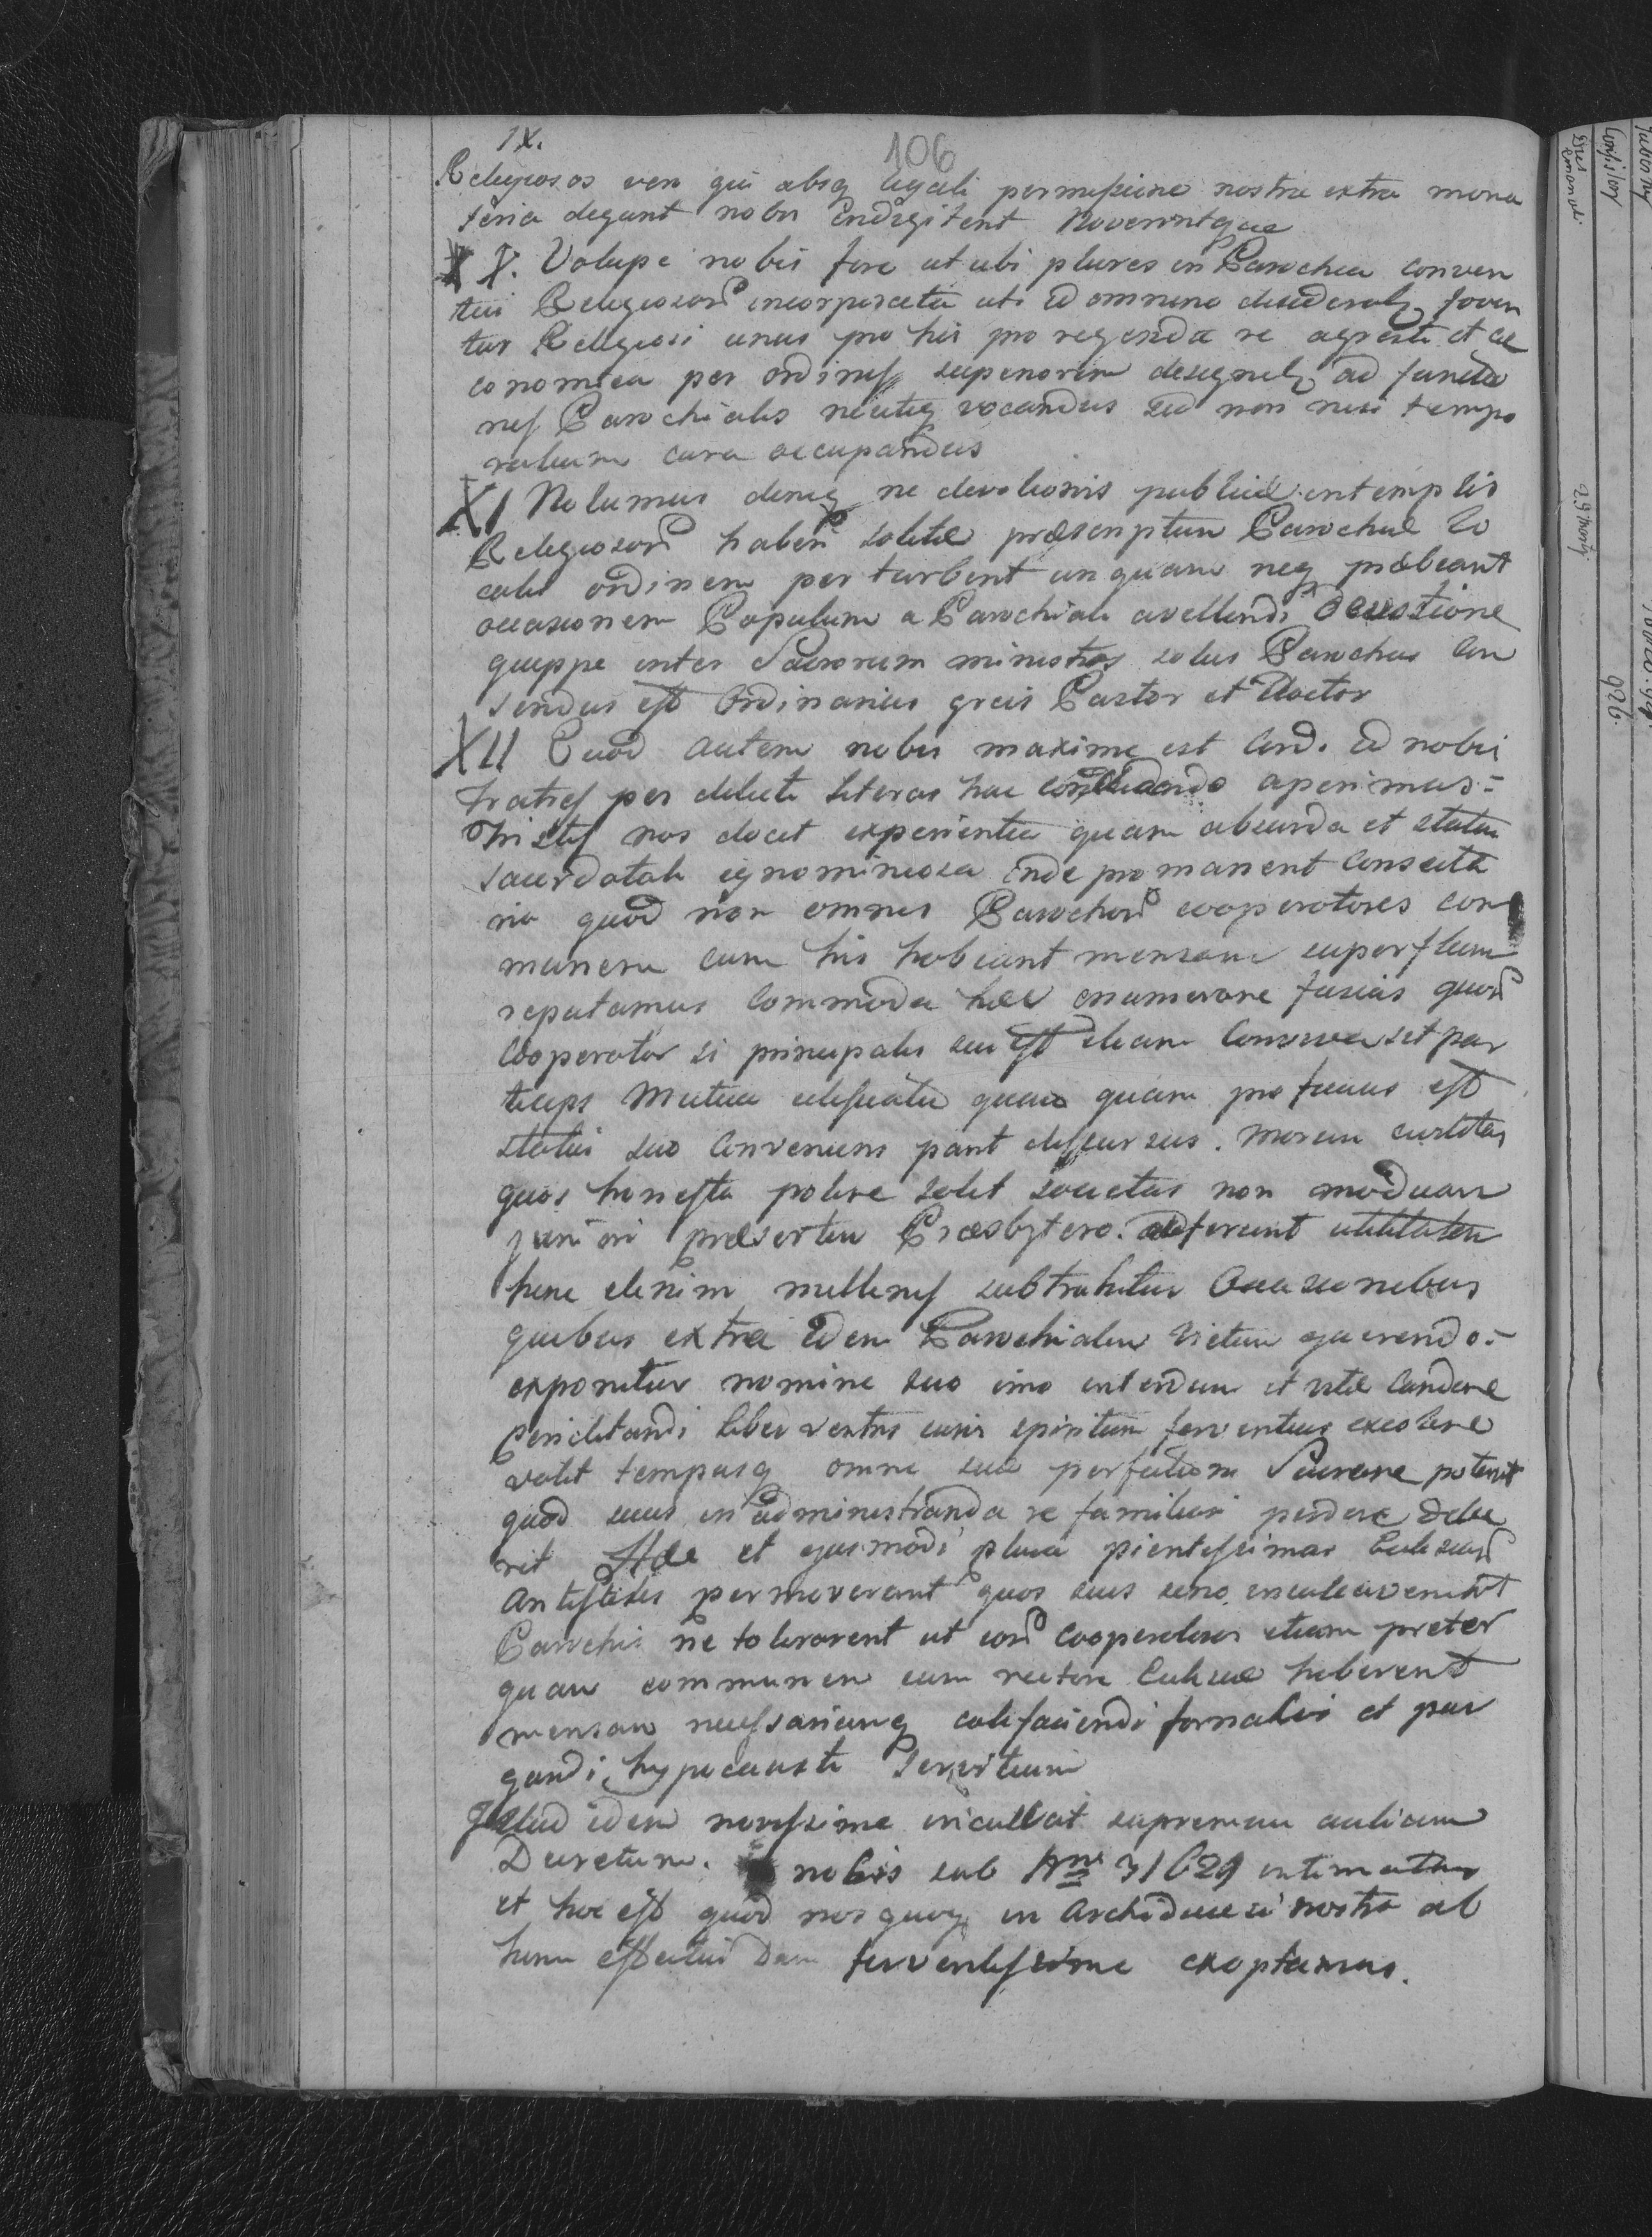 IX.
106
Religiosos vero qui absq legali permissione nostra extra mona
steria degunt nobis Endigitent Noverintque
X. Volupe nobis fore ut ubi plures in Parochia conven
tui Religiosor incorporata uti id omnino desideratq foven
tur Religiosi unus pro his pro regenda re agresti et oe
conomica per ordines superiorem designetq ad functio
nes Parochiales neutiq vocandus sed non nisi tempo
ralium cura occupandus
XI Nolumus deniq ne devotionis publicae in templis
Religiosor haberi solitae praescriptum Parochiae lo
calis ordinem perturbent unquam neq praebeant
occasionem Populum a Parochiali avellendi devotione
quippe inter Sacrorum ministros solus Parochus Cen
sendus est Ordinarius gregis Pastor et Doctor
XII Quod autem nobis maxime est Cord. id nobis
fratres per dilecti literas has concludendo aperimus:
Tristis nos docet experientia quam absurda et statui
sacerdotali ignominiosa inde promanent Consecta
ria quod non omnes Parochor cooperatores com
munem cum his habeant mensam superfluum
reputamus Commoda haec enumerare fusius quor
Cooperator si principalis sui est etiam Conviva fit par
ticeps Mutua aedificatio quam quam proficuus est
statui suo Conveniens parit discursus. Morum
quos honesta polire solet societas non modicam
juniori praesertim Presbytero. adferunt utilitatem
hinc etenim millenis subtrahitur Occasionibus
quibus extra Edem Parochialem victum quaerendo:
exponitur nomine suo imo interdum et vitae Candore
Periclitandi liber ventris curis spiritum ferventius excolere
valet tempusq omne suae perfectioni Sacrare poterit
quod secus in administranda re familiari perdere debe
rit Haec et ejusmodi plura pientissimos Ecclesiar
Antistites permoverant quos suis serio inculcaverint
Parochis ne tolerarent ut eor cooperatores etiam preter
quam communem cum rectore Ecclesiae haberent
mensam necessariumq calefaciendi fornacis et pur
gandi hypocausti Servitium
Istud idem novissime inculcat supremum aulicum
Decretum. nobis sub Nro 31629 intimatum
et hoc est quod nos quoq in Archidiecesi nostra ad
hunc effectui Dari ferventissime exoptamus.
29
926.